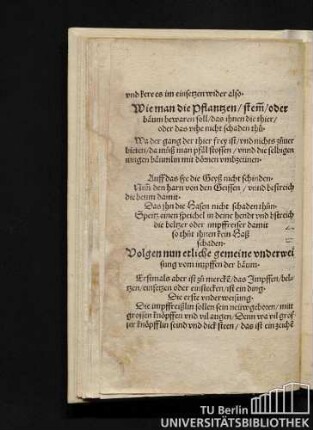 vnd kere es im einsetzen wider also.
Wie man die Pflantzen / stem̃ / oder
bäum bewaren soll / das ihnen die thier /
oder das vihe nicht schaden thü.
Wa der gang der thier frey ist / vnd nichts zůuer
bieten / da můß man pfäl stossen / vnnd die selbigen
iungen bäumlin mit dörnen vmbzeünen.
Auff das sye die Geyß nicht schinden.
Nim den harn von den Geissen / vnnd bestreich
die beum damit.
Das ihn die Hasen nicht schaden thün.
Spertz einen speichel in deine hendt vnd bstreich
die beltzer oder impffreiser damit
so thůt ihnen kein Haß
schaden.
Volgen nun etliche gemeine vnderwei
sung vom impffen der bäum.
Erstmals aber ist zů mercke / das Impffen / bel-
tzen / einsetzen oder einstecken / ist ein ding.
Die erste vnderweisung.
Die impffreißlin sollen sein neüwgeboren / mit
grossen knöpffen vnd vil augen / Denn wa vil gros
ser knöpfflin seind vnd dick steen / das ist ein zeiche
TU Berlin
UNIVERSITÄTSBIBLIOTHEK